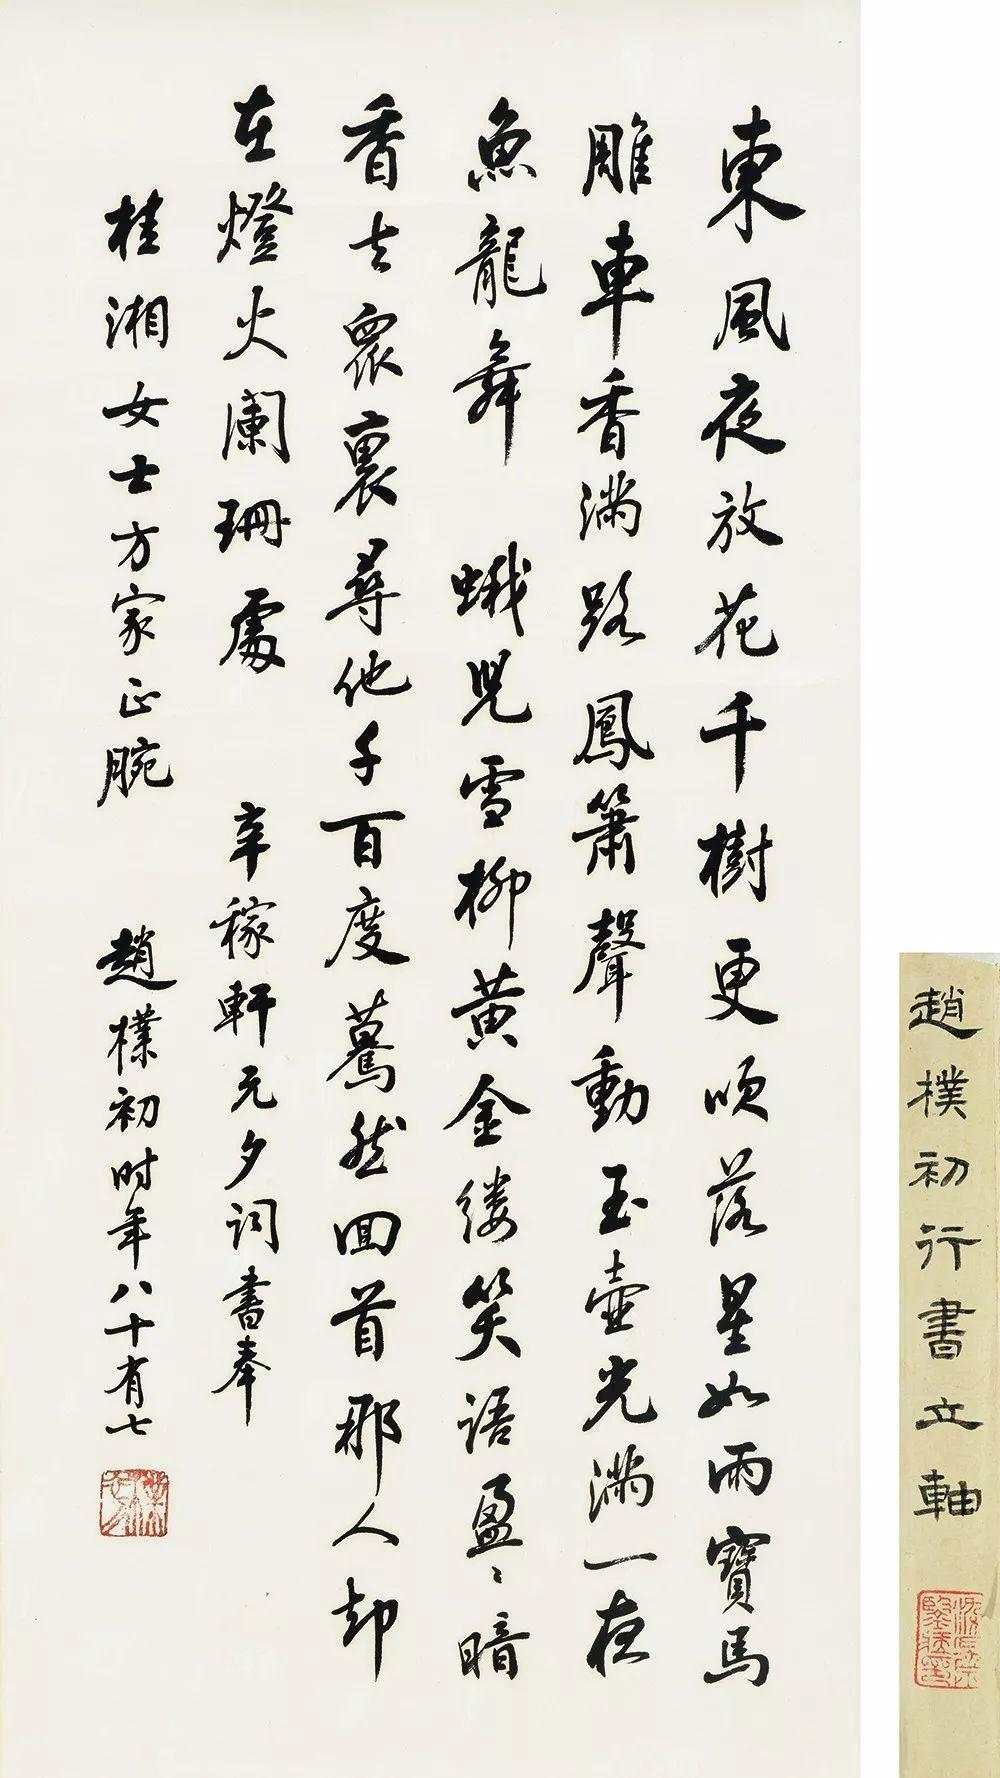 東風夜放花千樹更吹落星如雨寶馬
雕車香滿路鳳簫聲動玉壺光滿一夜
魚龍舞 蛾兒雪柳黄金縷笑語盈〻暗
香去眾裏尋他千百度驀然回首那人却
在燈火闌珊處 辛稼軒元夕詞書奉
桂湘女士方家正腕 趙樸初时年八十有七
趙樸初行書立軸